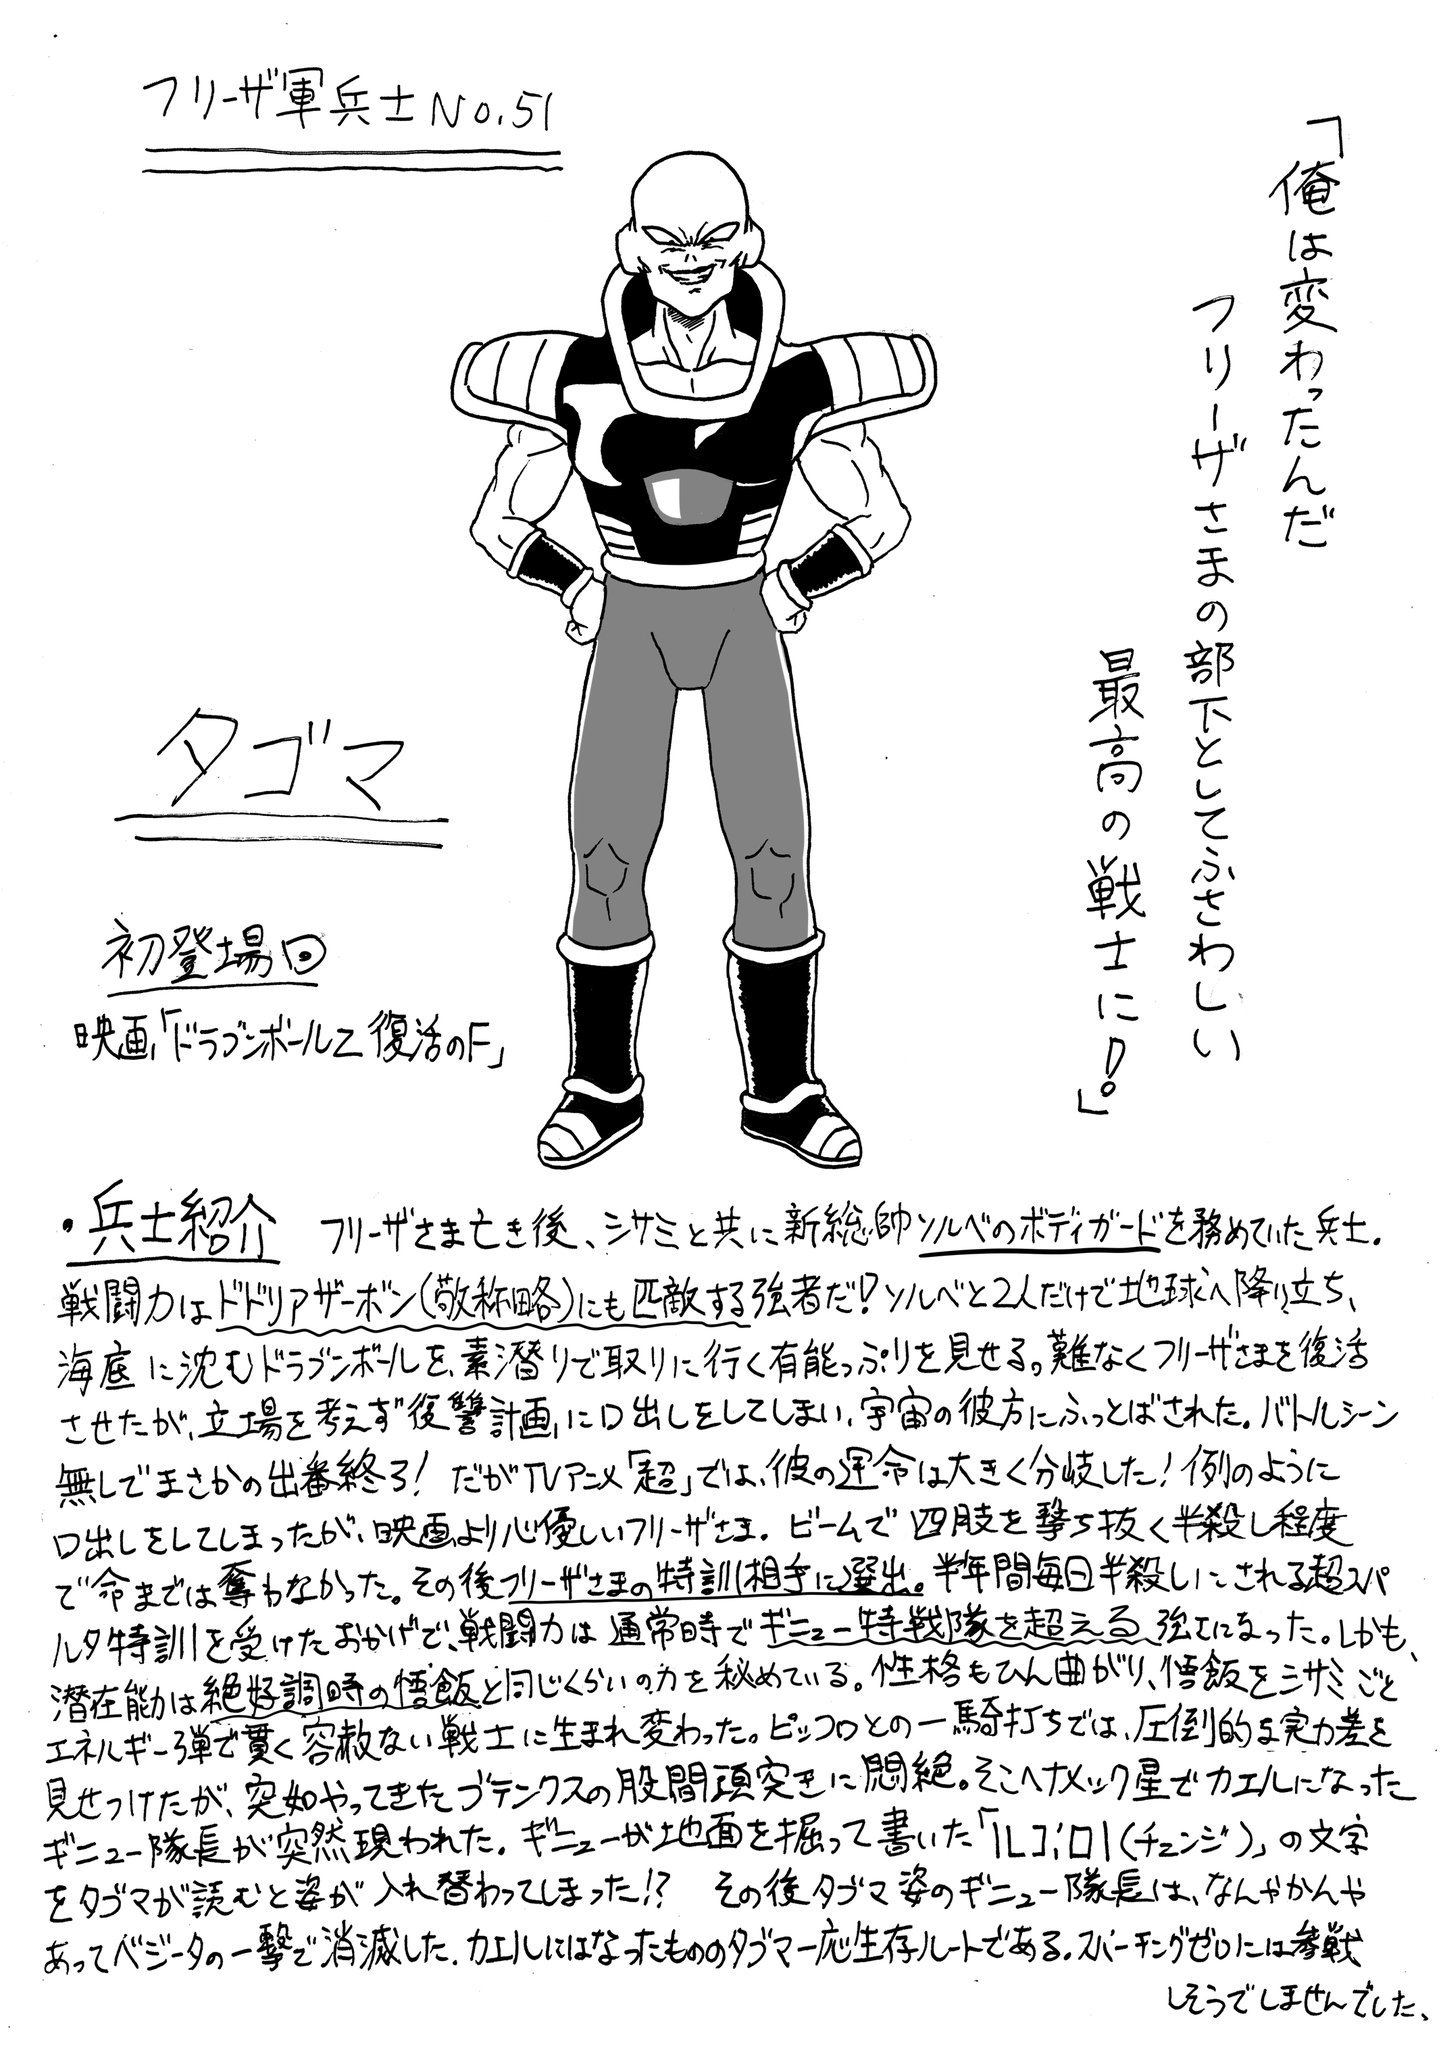 フリーザ軍兵士No.51
「俺は変わったんだ
フリーザさまの部下としてふさわしい
最高の戦士に!」
タゴマ
初登場回
映画「ドラゴンボールZ 復活のF」
・兵士紹介 フリーザさま亡き後、シサミと共に新総帥ソルベのボディガードを務めていた兵士。
戦闘力はドドリアザーボン(敬称略)にも匹敵する強者だ!ソルベと2人だけで地球へ降り立ち、
海底に沈むドラゴンボールを、素潜りで取りに行く有能っぷりを見せる。難なくフリーザさまを復活
させたが、立場を考えず復讐計画に口出しをしてしまい、宇宙の彼方にふっとばされた。バトルシーン
無しでまさかの出番終了! だがTVアニメ「超」では、彼の運命は大きく分岐した!例のように
口出しをしてしまったが、映画より心優しいフリーザさま。ビームで四肢を撃ち抜く半殺し程度
で命までは奪わなかった。その後フリーザさまの特訓相手に選出。半年間毎日半殺しにされる超スパ
ルタ特訓を受けたおかげで、戦闘力は通常時でギニュー特戦隊を超える強さになった。しかも、
潜在能力は絶好調時の悟飯と同じくらいの力を秘めている。性格もひん曲がり、悟飯をシサミごと
エネルギー弾で貫く容赦ない戦士に生まれ変わった。ピッコロとの一騎打ちでは、圧倒的な実力差を
見せつけたが、突如やってきたゴテンクスの股間頭突きに悶絶。そこへナメック星でカエルになった
ギニュー隊長が突然現われた。ギニューが地面を掘って書いた「ルコ;ロ|(チェンジ)」の文字
をタゴマが読むと姿が入れ替わってしまった!? その後タゴマ姿のギニュー隊長は、なんやかんや
あってベジータの一撃で消滅した。カエルにはなったもののタゴマ一応生存ルートである。スパーキングゼロには参戦
しそうでしませんでした。